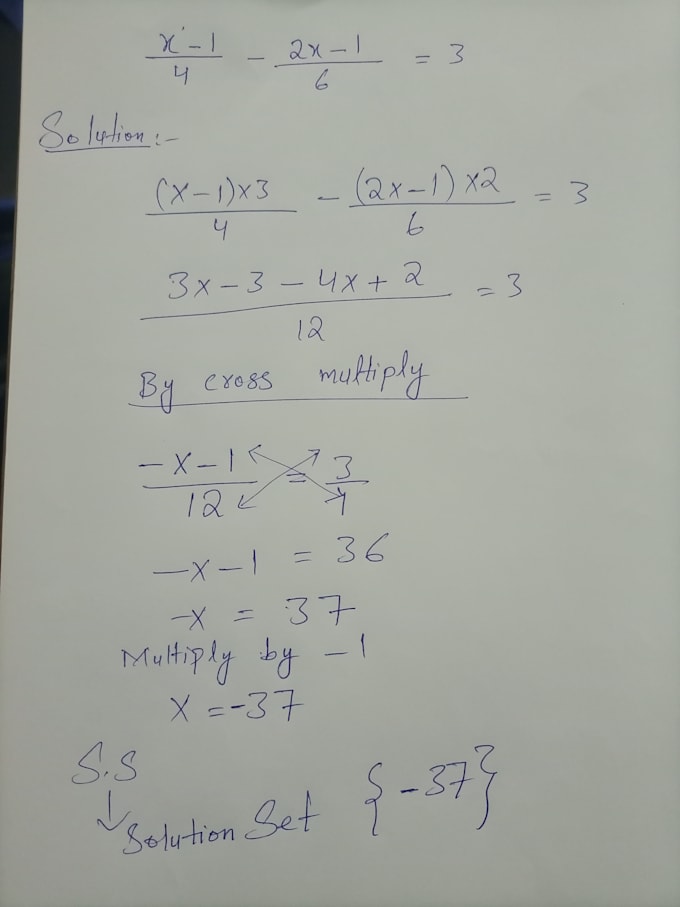 x-1/4 - 2x-1/6 = 3
Solution:-
(x-1)x3/4 - (2x-1)x2/6 = 3
3x-3-4x+2/12 = 3
By cross multiply
-x-1/12 = 3/1
-x-1 = 36
-x = 37
Multiply by -1
x = -37
S.S
↓
Solution Set {-37}